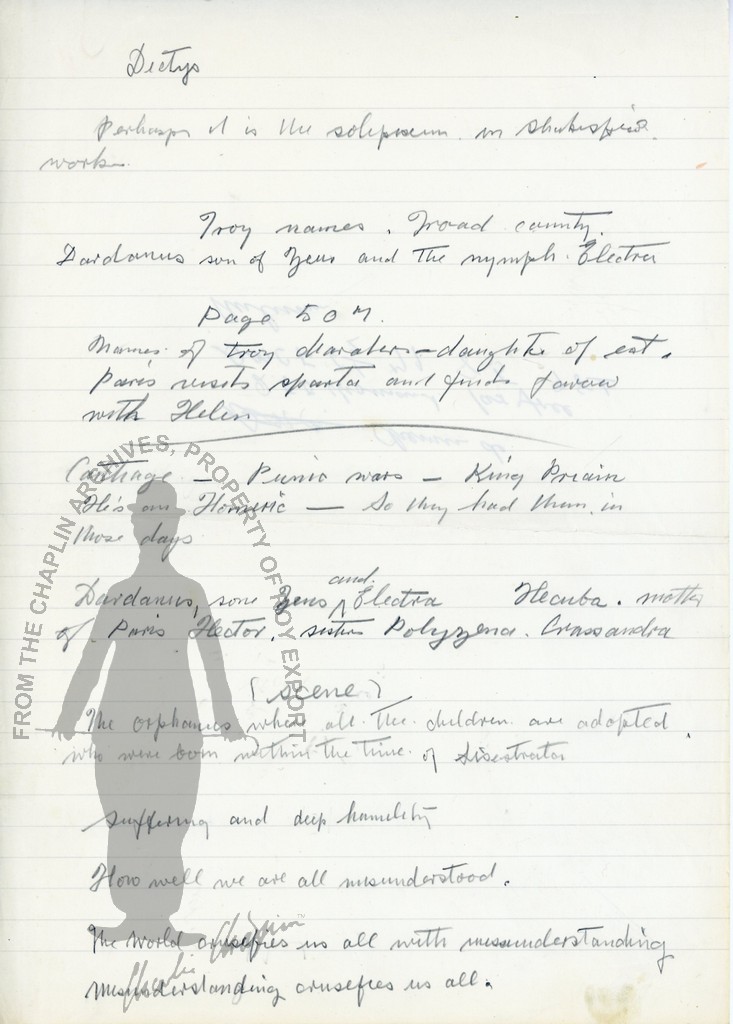 Dictys
Perhasps it is the in Shakespier
works.
Troy names. Troad county.
Dardanus son of Zeus and the nymph. Electra
Page 507.
Names of troy charaters - daughte of eat.
Paris visits sparta and finds favou
with Helen
Carthage — Punic wars — King Priam
He's an Homeric — So they had them in
those days
and
Dardanus, sone Zeus Electra Hecuba. mother
of Paris Hector. sister Polyxena. Crassandra
(scene)
The orphanies where all the children are adopted
who were born within the time of
suffering and deep
How well we are all misunderstood.
The World crusefies us all with missunderstanding
Missunderstanding crusefies us all.
Charlie Chaplin
FROM THE CHAPLIN ARCHIVES, PROPERTY OF ROY EXPORT